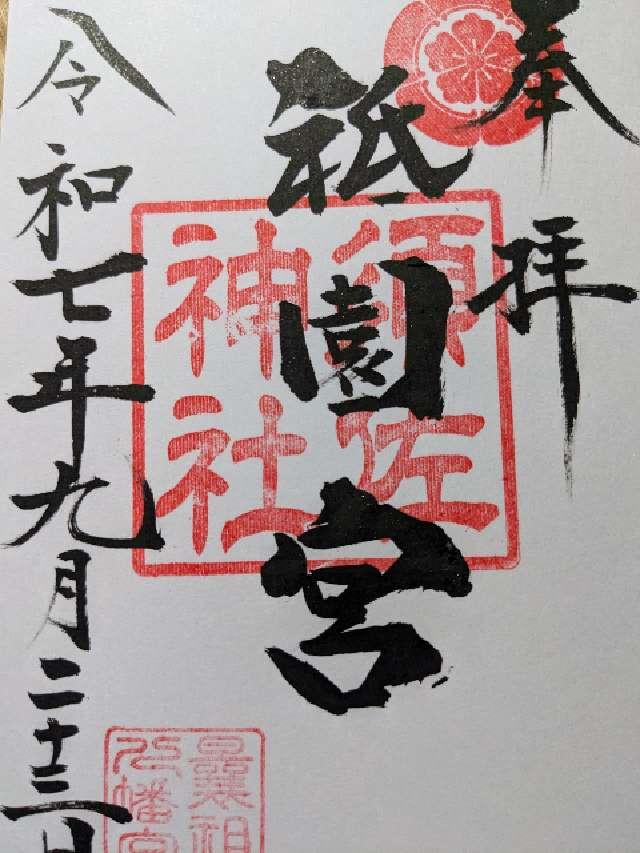 奉拝
祇園宮
須佐
神社
令和七年九月二十三日
八幡宮